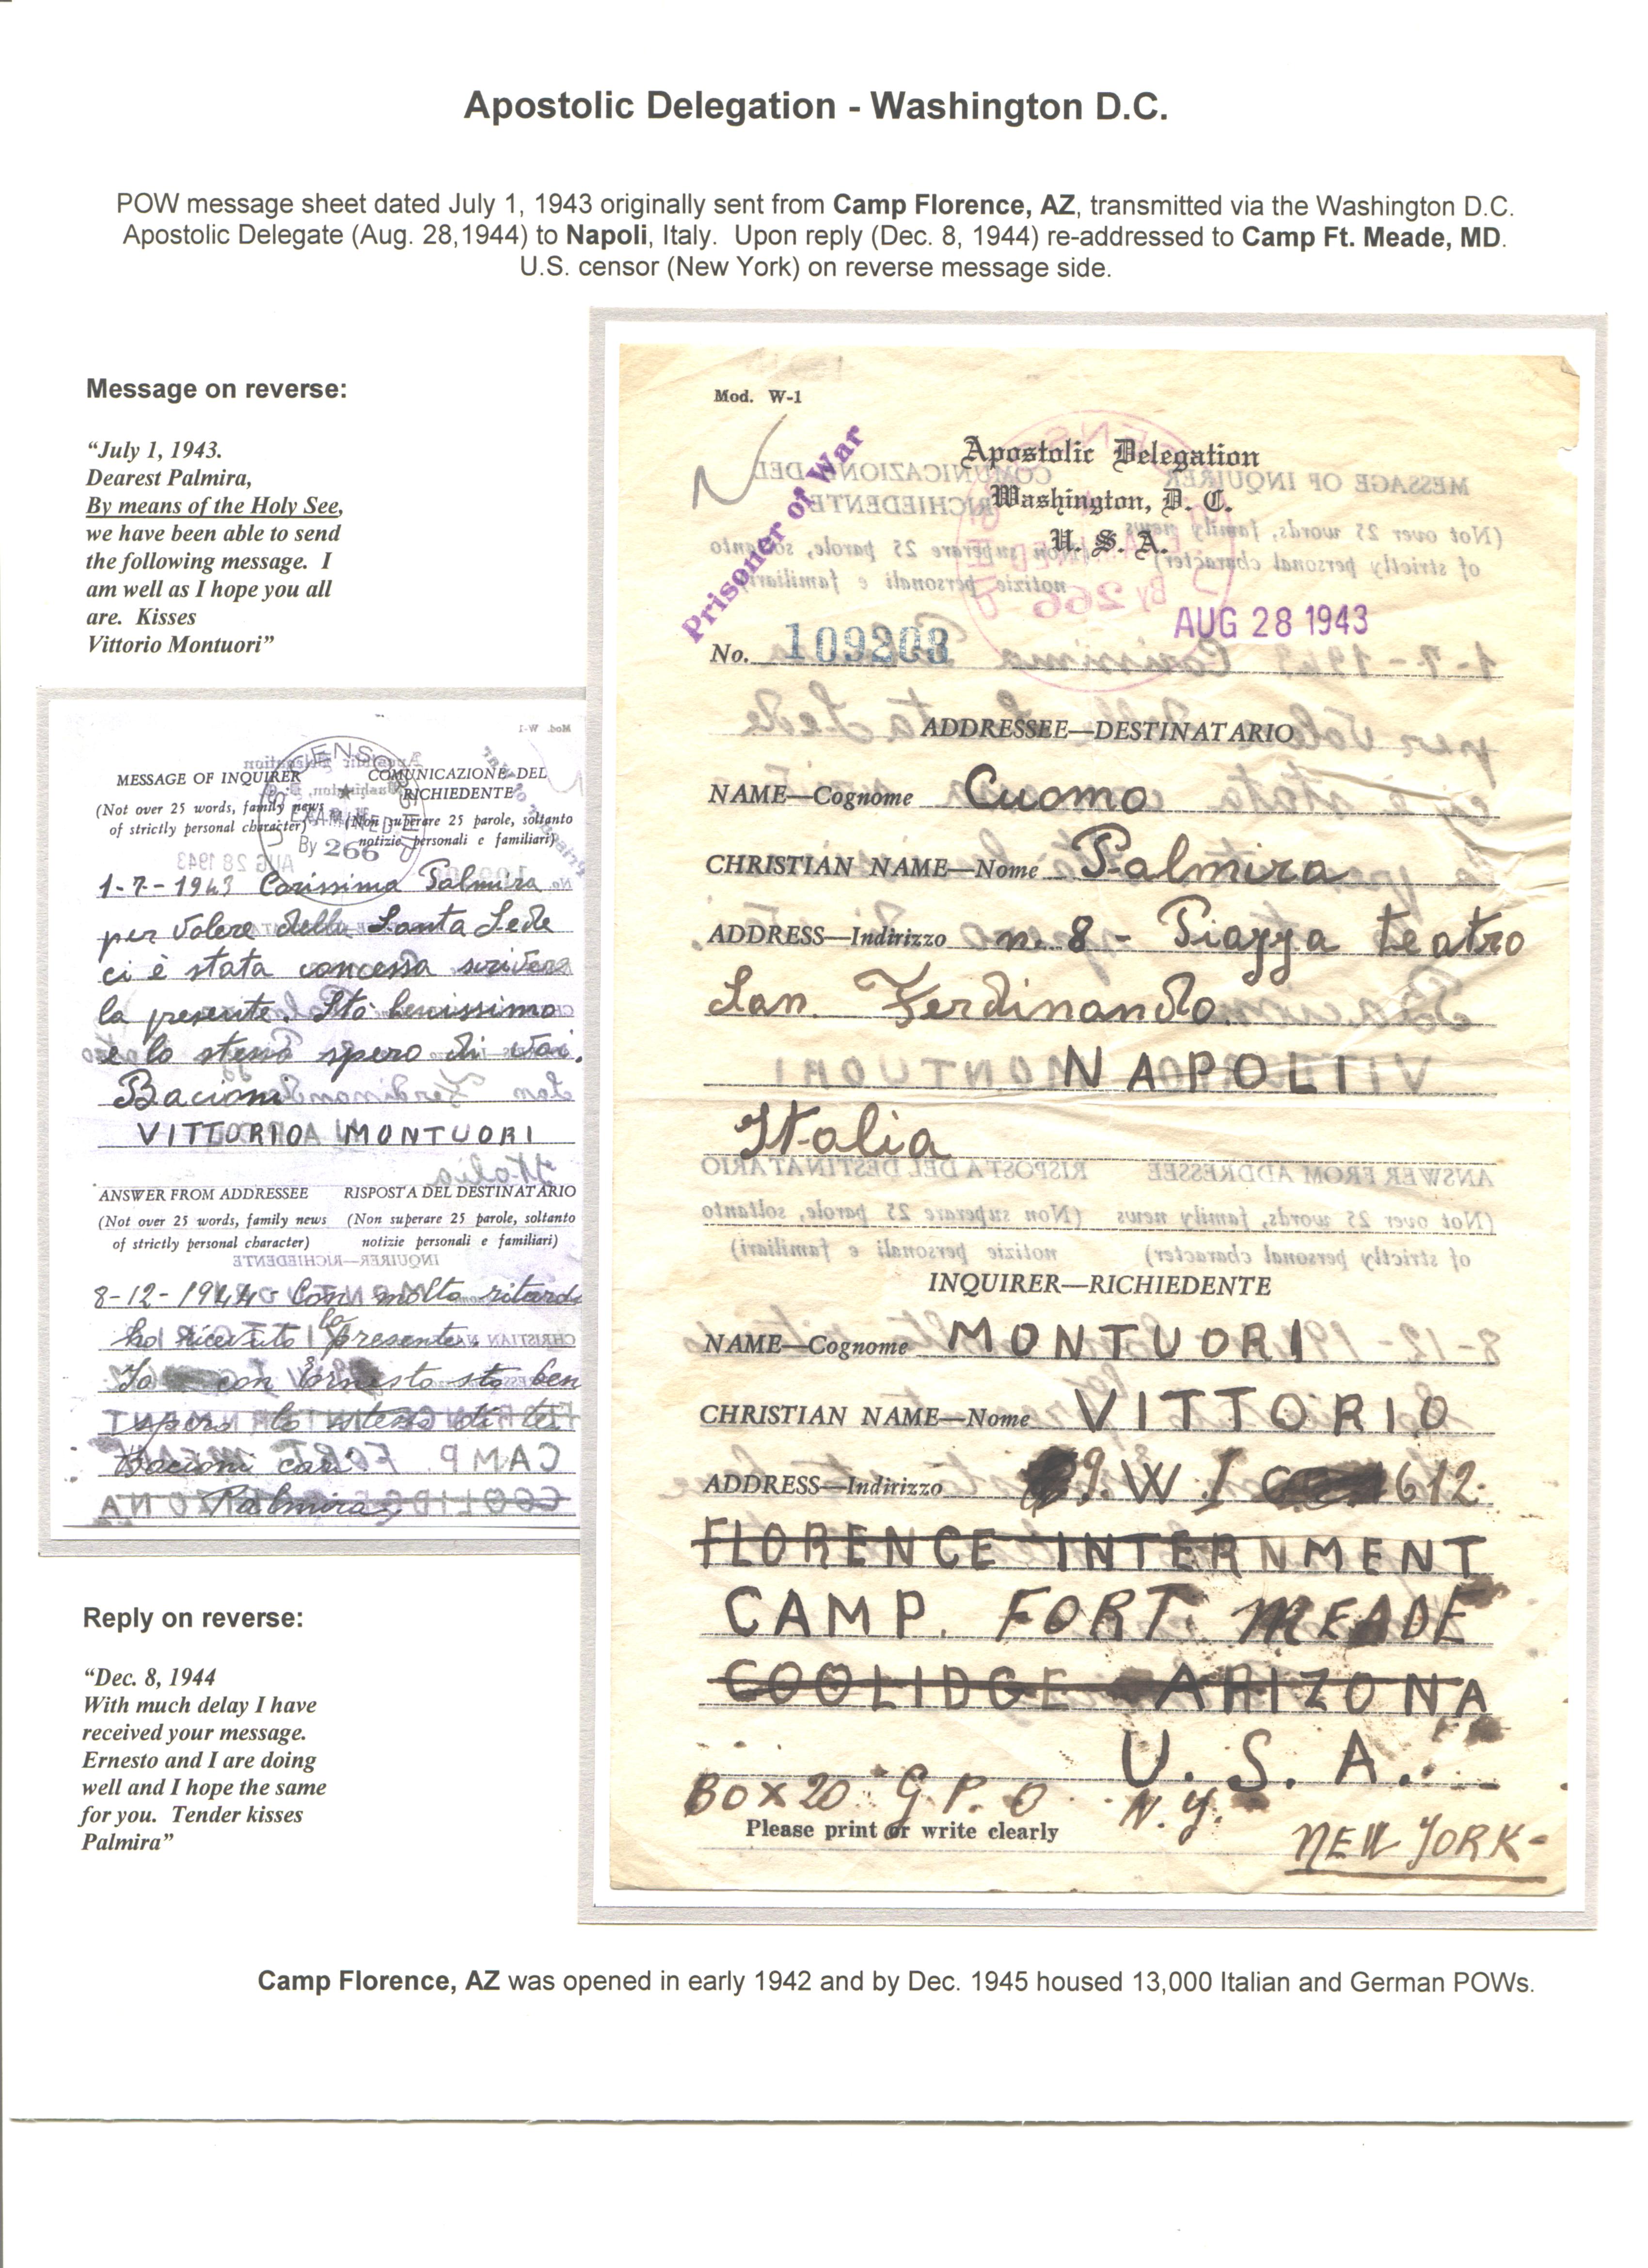 Apostolic Delegation - Washington D.C.
POW message sheet dated July 1, 1943 originally sent from Camp Florence, AZ, transmitted via the Washington D.C.
Apostolic Delegate (Aug. 28,1944) to Napoli, Italy. Upon reply (Dec. 8, 1944) re-addressed to Camp Ft. Meade, MD.
U.S. censor (New York) on reverse message side.
Message on reverse:
“July 1, 1943.
Dearest Palmira,
By means of the Holy See,
we have been able to send
the following message. I
am well as I hope you all
are. Kisses
Vittorio Montuori”
MESSAGE OF INQUIRER
(Not over 25 words, family news
of strictly personal character)
COMUNICAZIONE DEL
RICHIEDENTE
(Non superare 25 parole, soltanto
notizie personali e familiari)
U.S. CENSORSHIP
EXAMINED
By 266
1-7-1943 Carissima Palmira
per volere della Santa Sede
ci è stata concessa scrivere
la presente. Sto benissimo
e lo stesso spero di voi.
Bacioni
VITTORIO MONTUORI
ANSWER FROM ADDRESSEE
(Not over 25 words, family news
of strictly personal character)
RISPOSTA DEL DESTINATARIO
(Non superare 25 parole, soltanto
notizie personali e familiari)
8-12-1944 Con molto ritardo
ho ricevuto la presente.
Io con Ernesto sto ben
spero lo stesso di te
Bacioni cari
Palmira
Reply on reverse:
“Dec. 8, 1944
With much delay I have
received your message.
Ernesto and I are doing
well and I hope the same
for you. Tender kisses
Palmira”
Mod. W-1
Prisoner of War
Apostolic Delegation
Washington, D. C.
U. S. A.
AUG 28 1943
No. 109203
ADDRESSEE—DESTINATARIO
NAME—Cognome Cuomo
CHRISTIAN NAME—Nome Palmira
ADDRESS—Indirizzo n. 8 - Piazza Teatro
San. Ferdinando.
NAPOLI
Italia
INQUIRER—RICHIEDENTE
NAME—Cognome MONTUORI
CHRISTIAN NAME—Nome VITTORIO
ADDRESS—Indirizzo 9. W. I 612.
FLORENCE INTERNMENT
CAMP. FORT MEADE
COOLIDGE ARIZONA
U. S. A.
BOX 20 G. P. O. N. Y.
Please print or write clearly
NEW YORK-
Camp Florence, AZ was opened in early 1942 and by Dec. 1945 housed 13,000 Italian and German POWs.